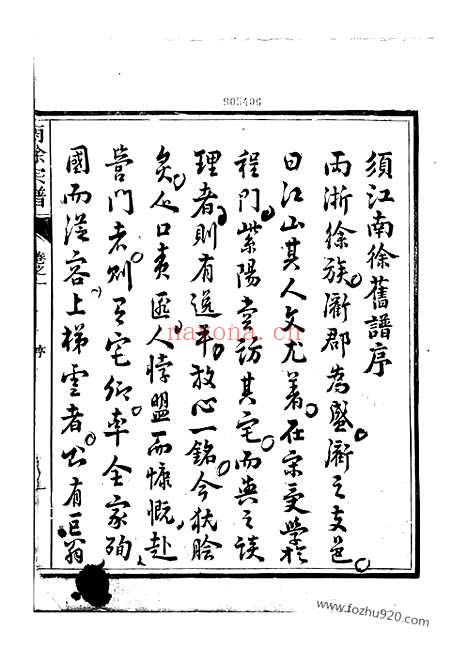 905406
須江南徐舊譜序
兩浙徐族衢郡為盛衢之支邑
曰江山其人文尤著在宋受學於
程門紫陽嘗訪其宅而與之談
理者則有逸平放心一銘今猶膾
炙人口責匪人悖盟而慷慨赴
營門者則有宅卿率全家殉
國而從容上梯雲者公有巨翁
南徐宗譜
卷之一
序
nanona.cn
www.fozhu920.com